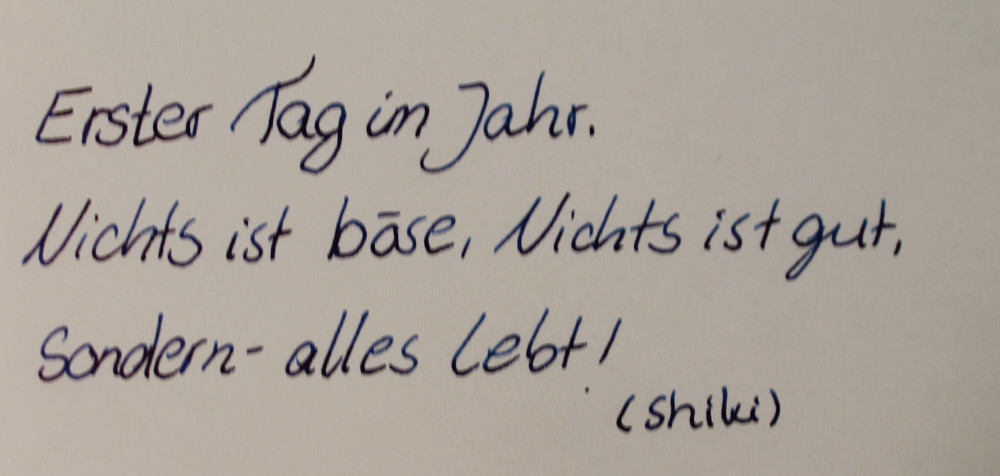 Erster Tag im Jahr.
Nichts ist böse, Nichts ist gut,
Sondern - alles Lebt!
(Shiki)